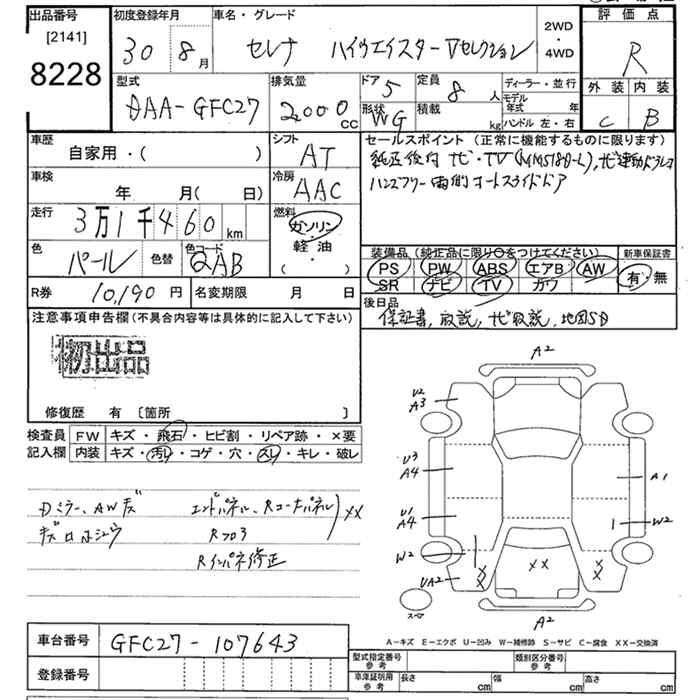 出品番号
[2141]
8228
初度登録年月
30 8月
車名・グレード
セレナ ハイウエイスター Vセレクション
2WD
・
4WD
評価点
R
外装 内装
C B
型式
DAA-GFC27
排気量
2000cc
ドア 5
定員 8人
形状 WG
積載 kg
ディーラー・並行
モデル年式 年
ハンドル 左・右
車歴
自家用・( )
シフト
AT
車検
年 月(日)
冷房
AAC
走行
3万1千460km
燃料
ガソリン
軽油
( ・ )
色
パール
色替
色コード
QAB
R券 10,190円
名変期限 月 日
セールスポイント (正常に機能するものに限ります)
純正後付 ナビ・TV(MM518D-L), ナビ連動ドラレコ
ハンズフリー両側オートスライドドア
装備品 (純正品に限り○をつけてください)
新車保証書
PS PW ABS エアB AW
SR ナビ TV カワ
有・無
後日品
保証書, 取説, ナビ取説, 地図SD
注意事項申告欄(不具合内容等は具体的に記入して下さい)
初出品
修復歴 有 〔箇所 〕
検査員記入欄
FW キズ・飛石・ヒビ割・リペア跡・×要
内装 キズ・汚レ・コゲ・穴・スレ・キレ・破レ
Dミラー、AWキズ
エンドパネル、Rコーナーパネル XX
Rフロア
Rインパネ修正
A2
U2
A3
U3
A4
U1
A4
W2
UA2
A1
W2
XX
XX
XX
A2
スペア
A-キズ E-エクボ U-凹み W-補修跡 S-サビ C-腐食 XX-交換済
車台番号 GFC27-107643
登録番号
型式指定番号 参考
類別区分番号 参考
車庫証明用 参考
長さ cm
幅 cm
高さ cm